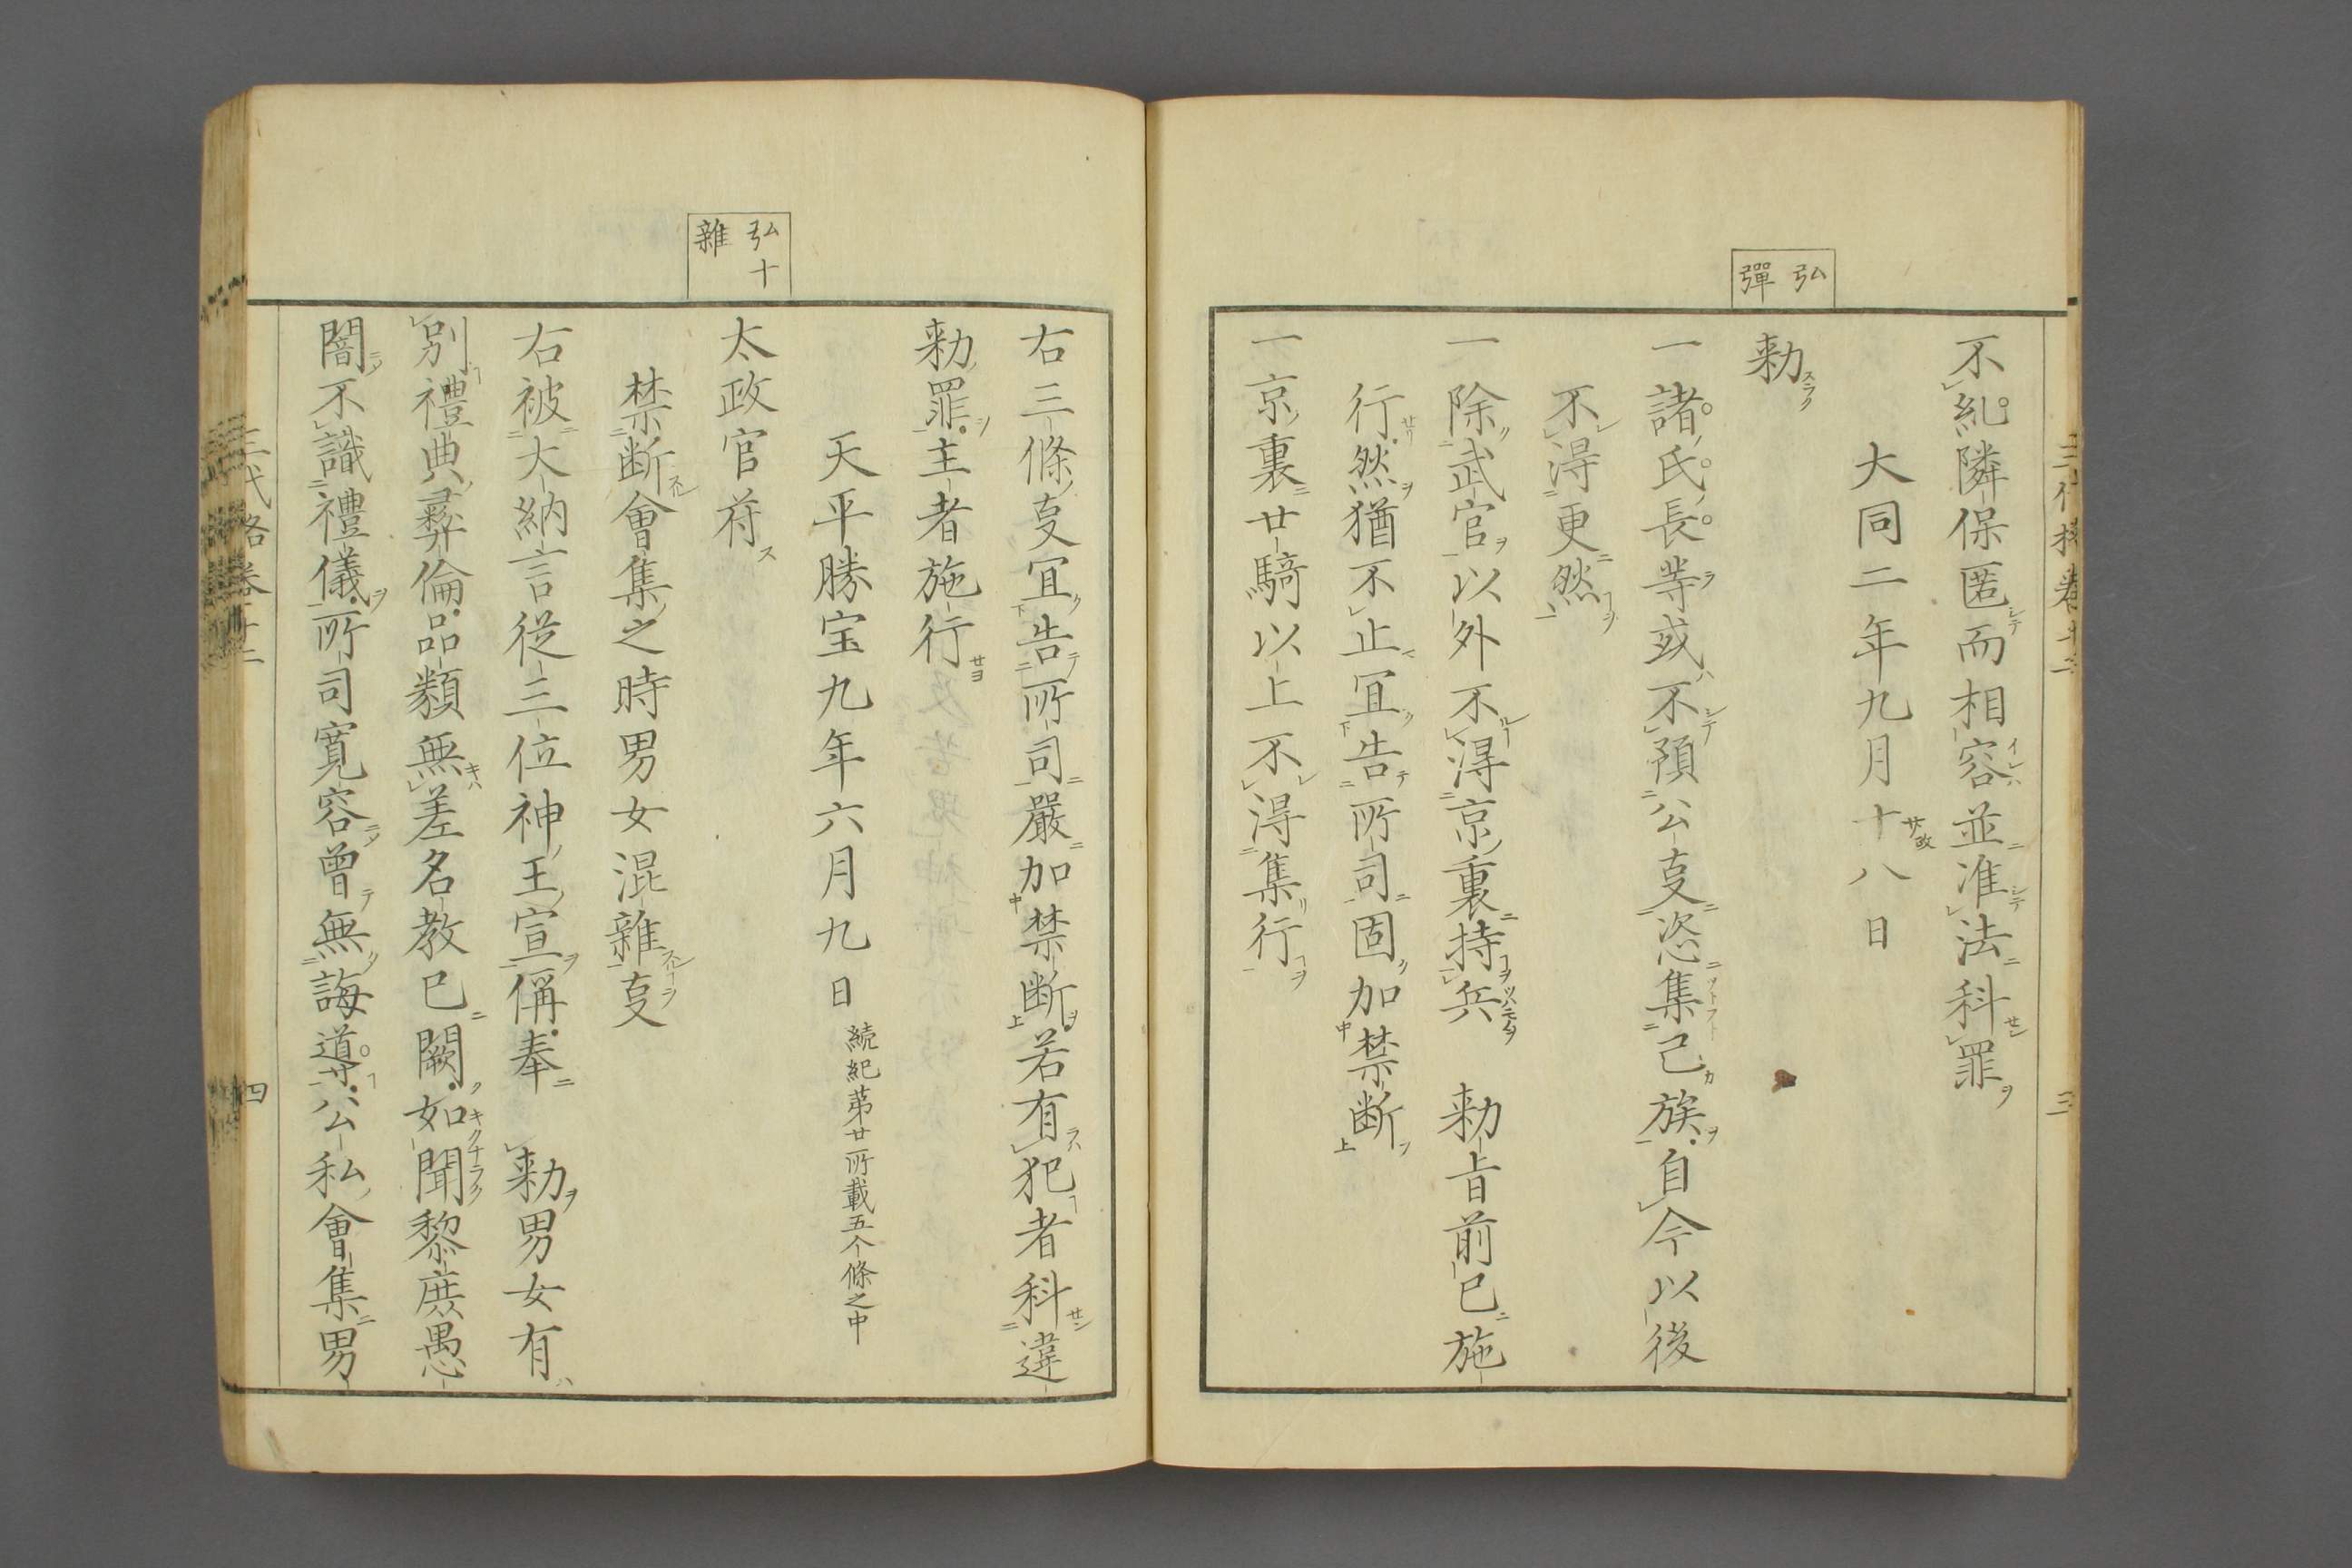 三代格卷十二 三
弘
彈
不糺隣保匿而相容並准法科罪
大同二年九月十八日
勅
一諸氏長等或不預公叓恣集己族自今以後
不淂更然
一除武官以外不淂京裏持兵　勅旨前已施
行然猶不止冝告所司固加禁断
一京裏廿騎以上不淂集行
弘十
雜
右三條叓冝告所司嚴加禁断若有犯者科違
勅罪主者施行
天平勝宝九年六月九日 続紀苐廿所載五个條之中
太政官苻
禁断會集之時男女混雜叓
右被大納言從三位神王宣偁奉　勅男女有
別禮典彛倫品類無差名教已闕如聞黎庶愚
闇不識禮儀所司寛容曾無誨導公私會集男
三代格卷十二 四